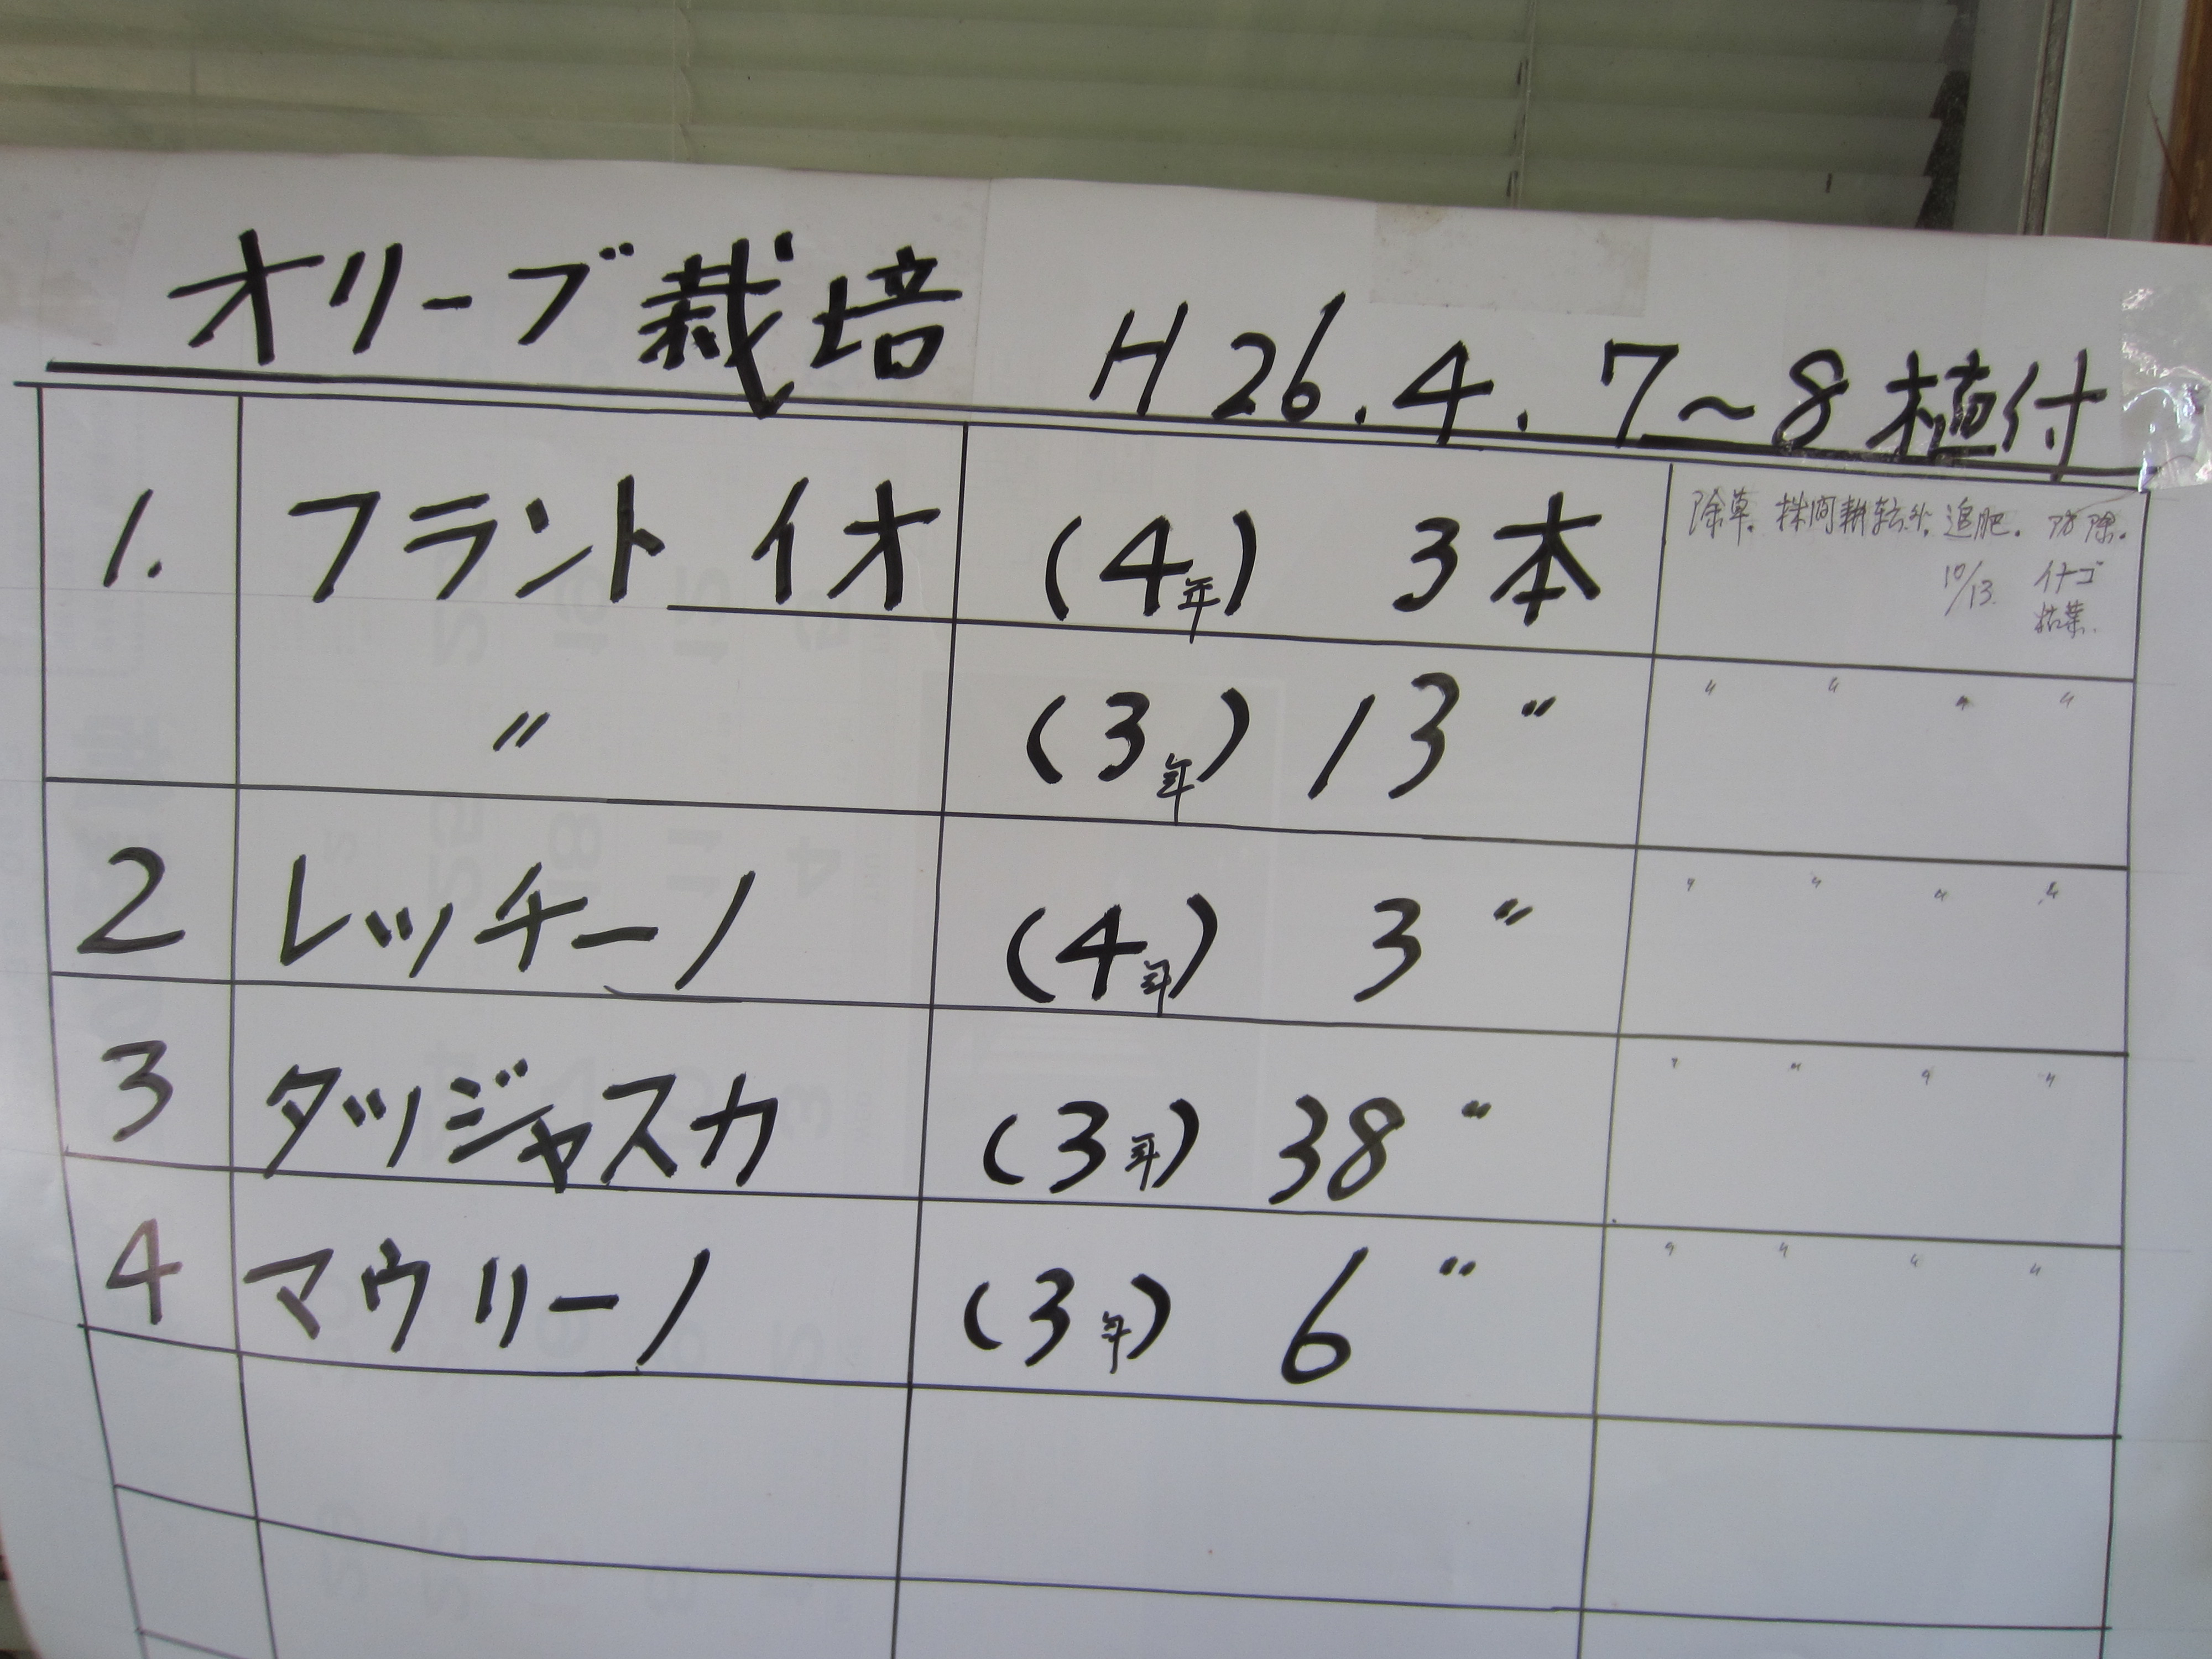 オリーブ栽培 H26.4.7～8植付
1. フラントイオ (4年) 3本 除草. 株間耕転. 追肥. 防除.
10/13. イナゴ
枯葉.
〃 (3年) 13〃 〃 〃 〃 〃
2 レッチーノ (4年) 3〃 〃 〃 〃 〃
3 タッジャスカ (3年) 38〃 〃 〃 〃 〃
4 マウリーノ (3年) 6〃 〃 〃 〃 〃